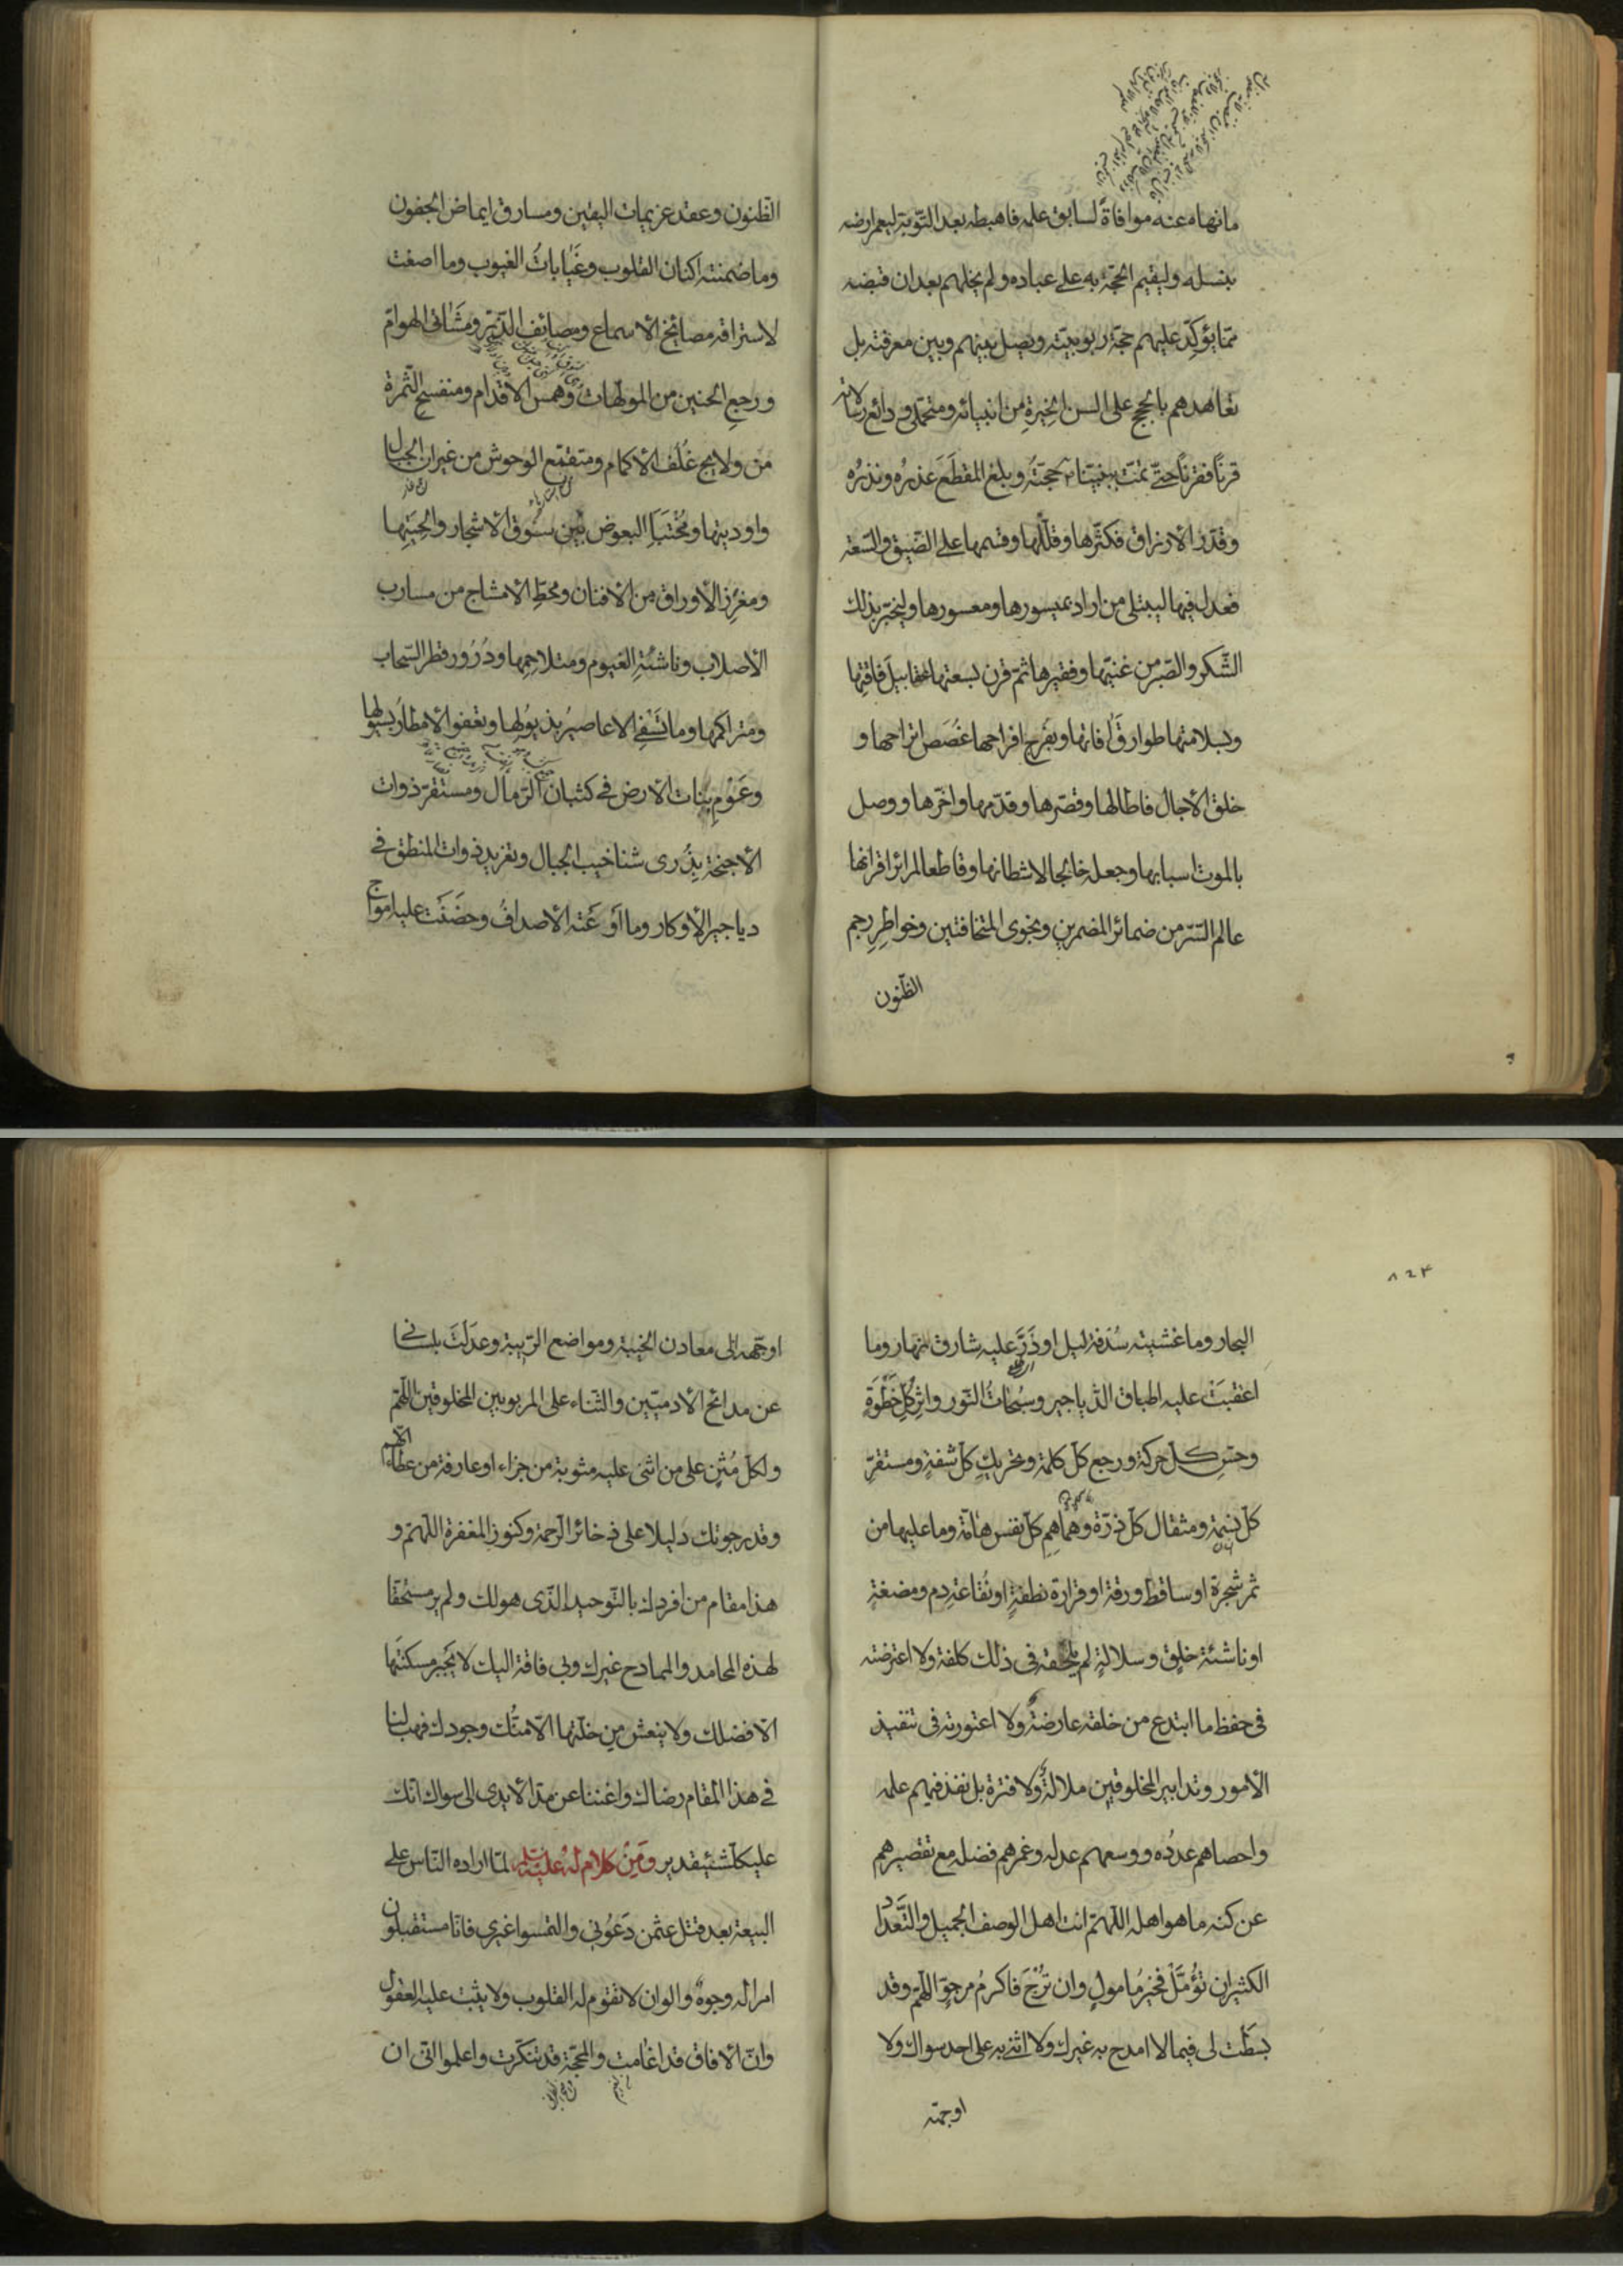 ما نهاه عنه موافاةً لسابق علمه فاهبطه بعد التّوبة ليعمر ارضه
بنسله وليقيم الحجّة به على عباده ولم يخلهم بعد ان قبضه
ممّا يؤكّد عليهم حجّة ربوبيّته ويصل بينهم وبين معرفته بل
تعاهدهم بالحجج على السن الخيرةِ من انبيائه ومتحمّلى ودائع رسالاته
قرناً فقرناً حتّى تمّت بنبيّنا حجّتُه وبلغ المقطعَ عذرُه ونذرُه
وقدّر الارزاق فكثّرها وقلّلها وقسمها على الضّيق والسّعة
فعدل فيها ليبتلى من اراد بميسورها ومعسورها وليختبر بذلك
الشّكر والصّبر من غنيّها وفقيرها ثمّ قرن بسعتها عقابيلَ فاقتِها
وبسلامتها طوارقَ افاتها وبفرج افراحها غُصَص اتراحها و
خلق الاجال فاطالها وقصّرها وقدّمها واخّرها ووصل
بالموت اسبابها وجعله خالجا لاشطانها وقاطعا لمرائر اقرانها
عالم السّرّ من ضمائر المضمرين ونجوى المتخافتين وخواطرِ رجم
الظّنون
الظّنون وعقد عزيمات اليقين ومسارق ايماض الجفون
وما ضمنته اكنان القلوب وغَيَاباتُ الغيوب وما اصغت
لاستراقه مصائخ الاسماع ومصائف الذّرّ ومشَاتى الهوامّ
ورجعِ الحنين من المولهات وهمس الاقدام ومنفسح الثّمرة
من ولايج غُلُف الاكمام ومتقمّع الوحوش من غيران الجبال
واوديتها ومُختَبَاِ البعوض بين سُوق الاشجار والحِيَتِها
ومغرِز الاوراق من الافنان ومحطِّ الامشاج من مسارب
الاصلاب وناشئةِ الغيوم ومتلاحِمِها ودُرُور قطر السّحاب
ومتراكمها وما تَسْفِى الاعاصيرُ بذيولِها وتعفو الامطارُ بسيولِها
وعَوْمِ بنات الارض فى كثبان الرّمال ومستقرّ ذوات
الاجنحة بِذُرى شناخيب الجبال وتغريد ذوات المنطق فى
دياجير الاوكار وما اَوْعَتْه الاصدافُ وحضَنَت عليه امواج
البحار وما غشيته سُدْفة ليل او ذَرَّ عليه شارق نهار وما
اعتقبَتْ عليه اطباق الدّياجير وسُبُحاتُ النّور واثرِ كلِّ خَطْوَةٍ
وحسِّ كلّ حركة ورجع كلّ كلمة وتحريكِ كلّ شفةٍ ومستقرّ
كلّ نسَمةٍ ومثقال كلّ ذرّة وهَماهِمِ كلّ نفس هامّة وما عليها من
ثمر شجرة او ساقط ورقة او قرارة نطفةٍ او نُقاعةِ دم ومضغةٍ
او ناشئة خلقٍ وسلالةٍ لم يلحقه فى ذلك كلفة ولا اعترضته
فى حفظ ما ابتدع من خلقه عارضةٌ ولا اعتورته فى تنفيذ
الامور وتدابير المخلوقين ملالةٌ ولا فترة بل نفذ فيهم علمه
واحصاهم عدُده ووسعهم عدله وغمرهم فضله مع تقصيرهم
عن كنه ما هو اهله اللّهمّ انت اهل الوصف الجميل والتَّعداد
الكثير ان تُؤمَّلْ فخيرُ مامولٍ وان تُرْجَ فاكرمُ مرجوّ اللّهمّ وقد
بسَطْت لى فيما لا امدح به غيرك ولا اثنى به على احد سواك ولا
اوجّهه
اوجّهه الى معادن الخيبة ومواضع الرّيبة وعدَلْتَ بلسانى
عن مدائح الادميّين والثّناء على المربوبين المخلوقين اللّهمّ
ولكلّ مُثْنٍ على من اثنى عليه مثوبة من جزاء او عارفة من عطاء
وقد رجوتك دليلا على ذخائر الرّحمة وكنوز المغفرة اللّهمّ و
هذا مقام من افردك بالتّوحيد الّذى هو لك ولم ير مستحقّا
لهذه المحامد والممادح غيرك وبى فاقة اليك لا يَجبر مسكنتها
الّا فضلك ولا ينعش من خلّتها الّا منُّك وجودك فهب لنا
فى هذا المقام رضاك واغننا عن مدّ الايدى الى سواك انّك
على كلّ شئ قدير ومِنْ كلام لهُ عليه السلم لمّا اراده النّاس على
البيعة بعد قتل عثمن دَعُونى والتمسوا غيرى فانّا مستقبلون
امرا له وجوهٌ والوان لا تقوم له القلوب ولا يثبت عليه العقول
وانّ الافاق قد اغامت والمحجّة قد تنكّرت واعلموا انّى ان